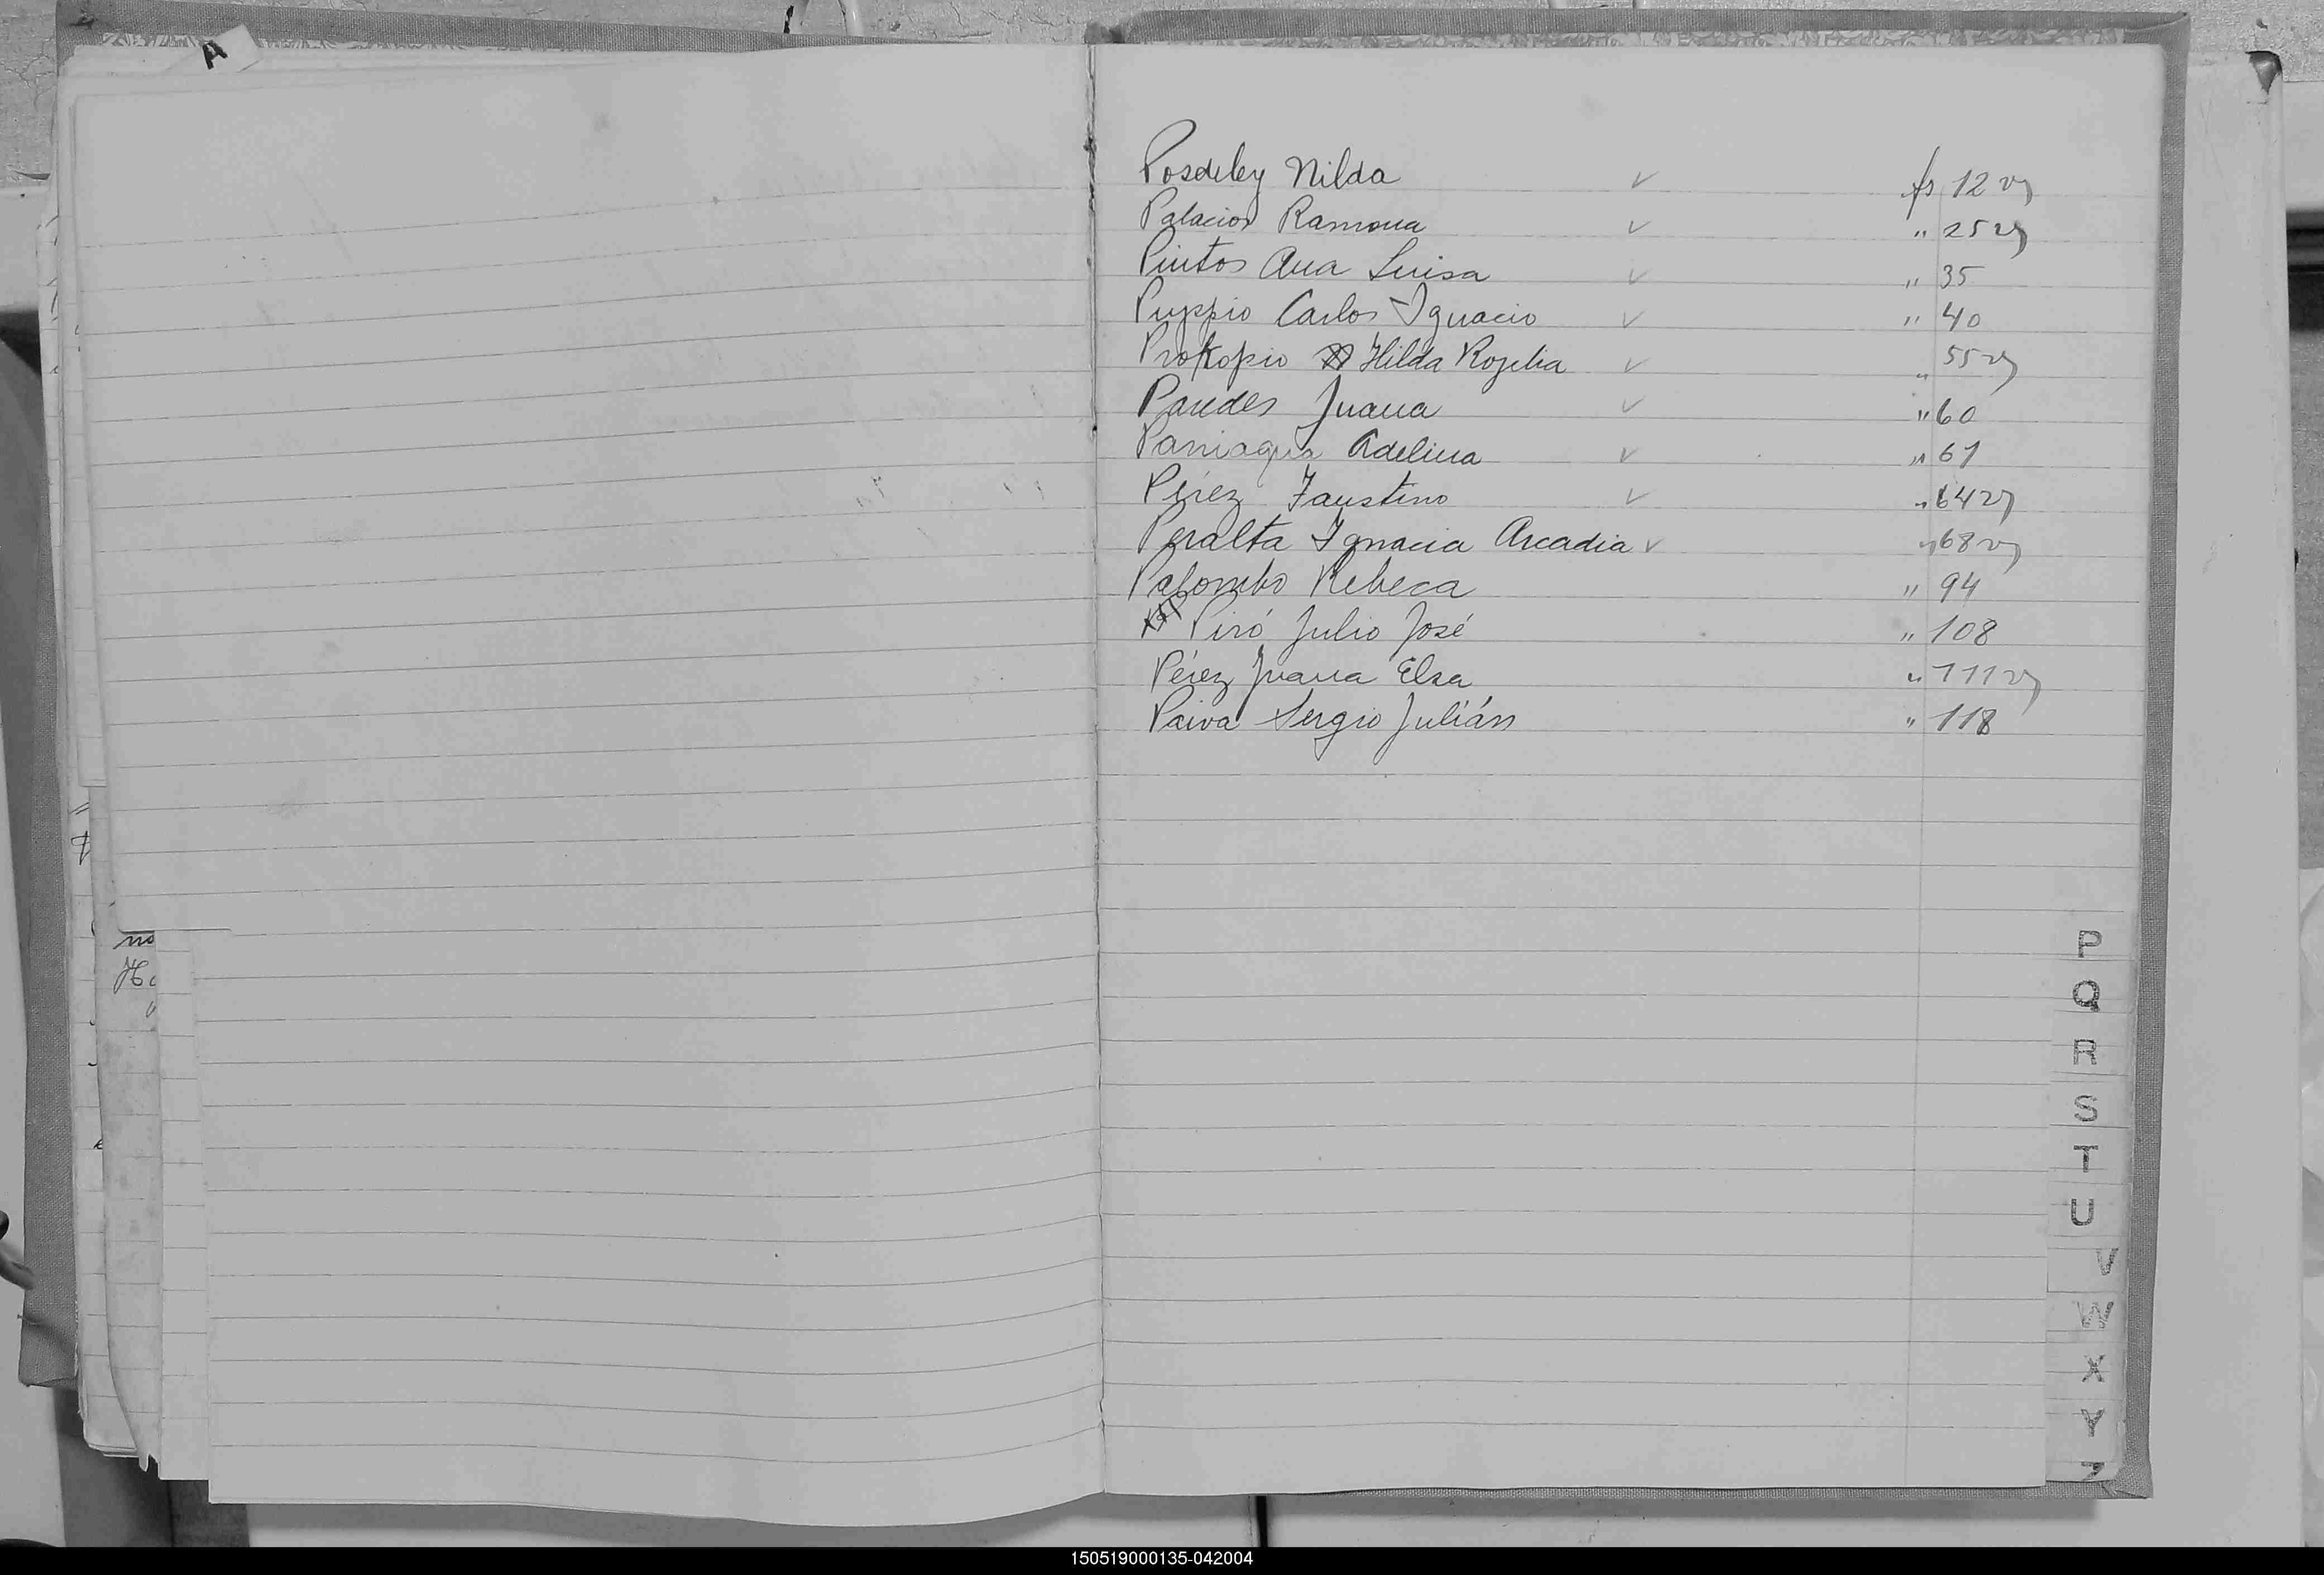 A
Posdeley Nilda ✓ fs 12 v
Palacios Ramona ✓ " 25 v
Pintos Ana Luisa ✓ " 35
Puppio Carlos Ignacio ✓ " 40
Prokopio Hilda Rogelia ✓ " 55 v
Paredes Juana ✓ " 60
Paniagua Adelina ✓ " 61
Pérez Faustino ✓ " 64 v
Peralta Ignacia Arcadia ✓ " 68 v
Palombo Rebeca " 94
Piró Julio José " 108
Pérez Juana Elsa " 111 v
Paiva Sergio Julián " 118
no
P
Q
R
S
T
U
V
W
X
Y
Z
150519000135-042004